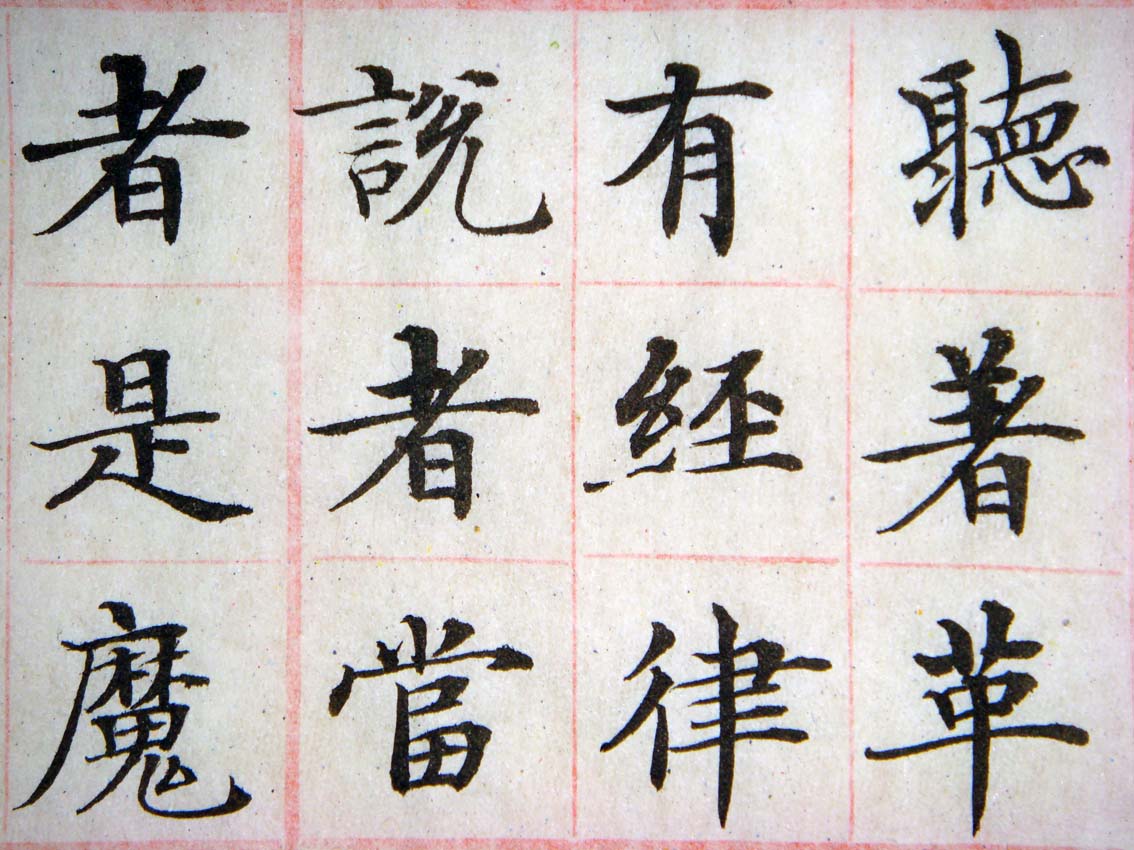 聽著革
有經律
說者當
者是魔